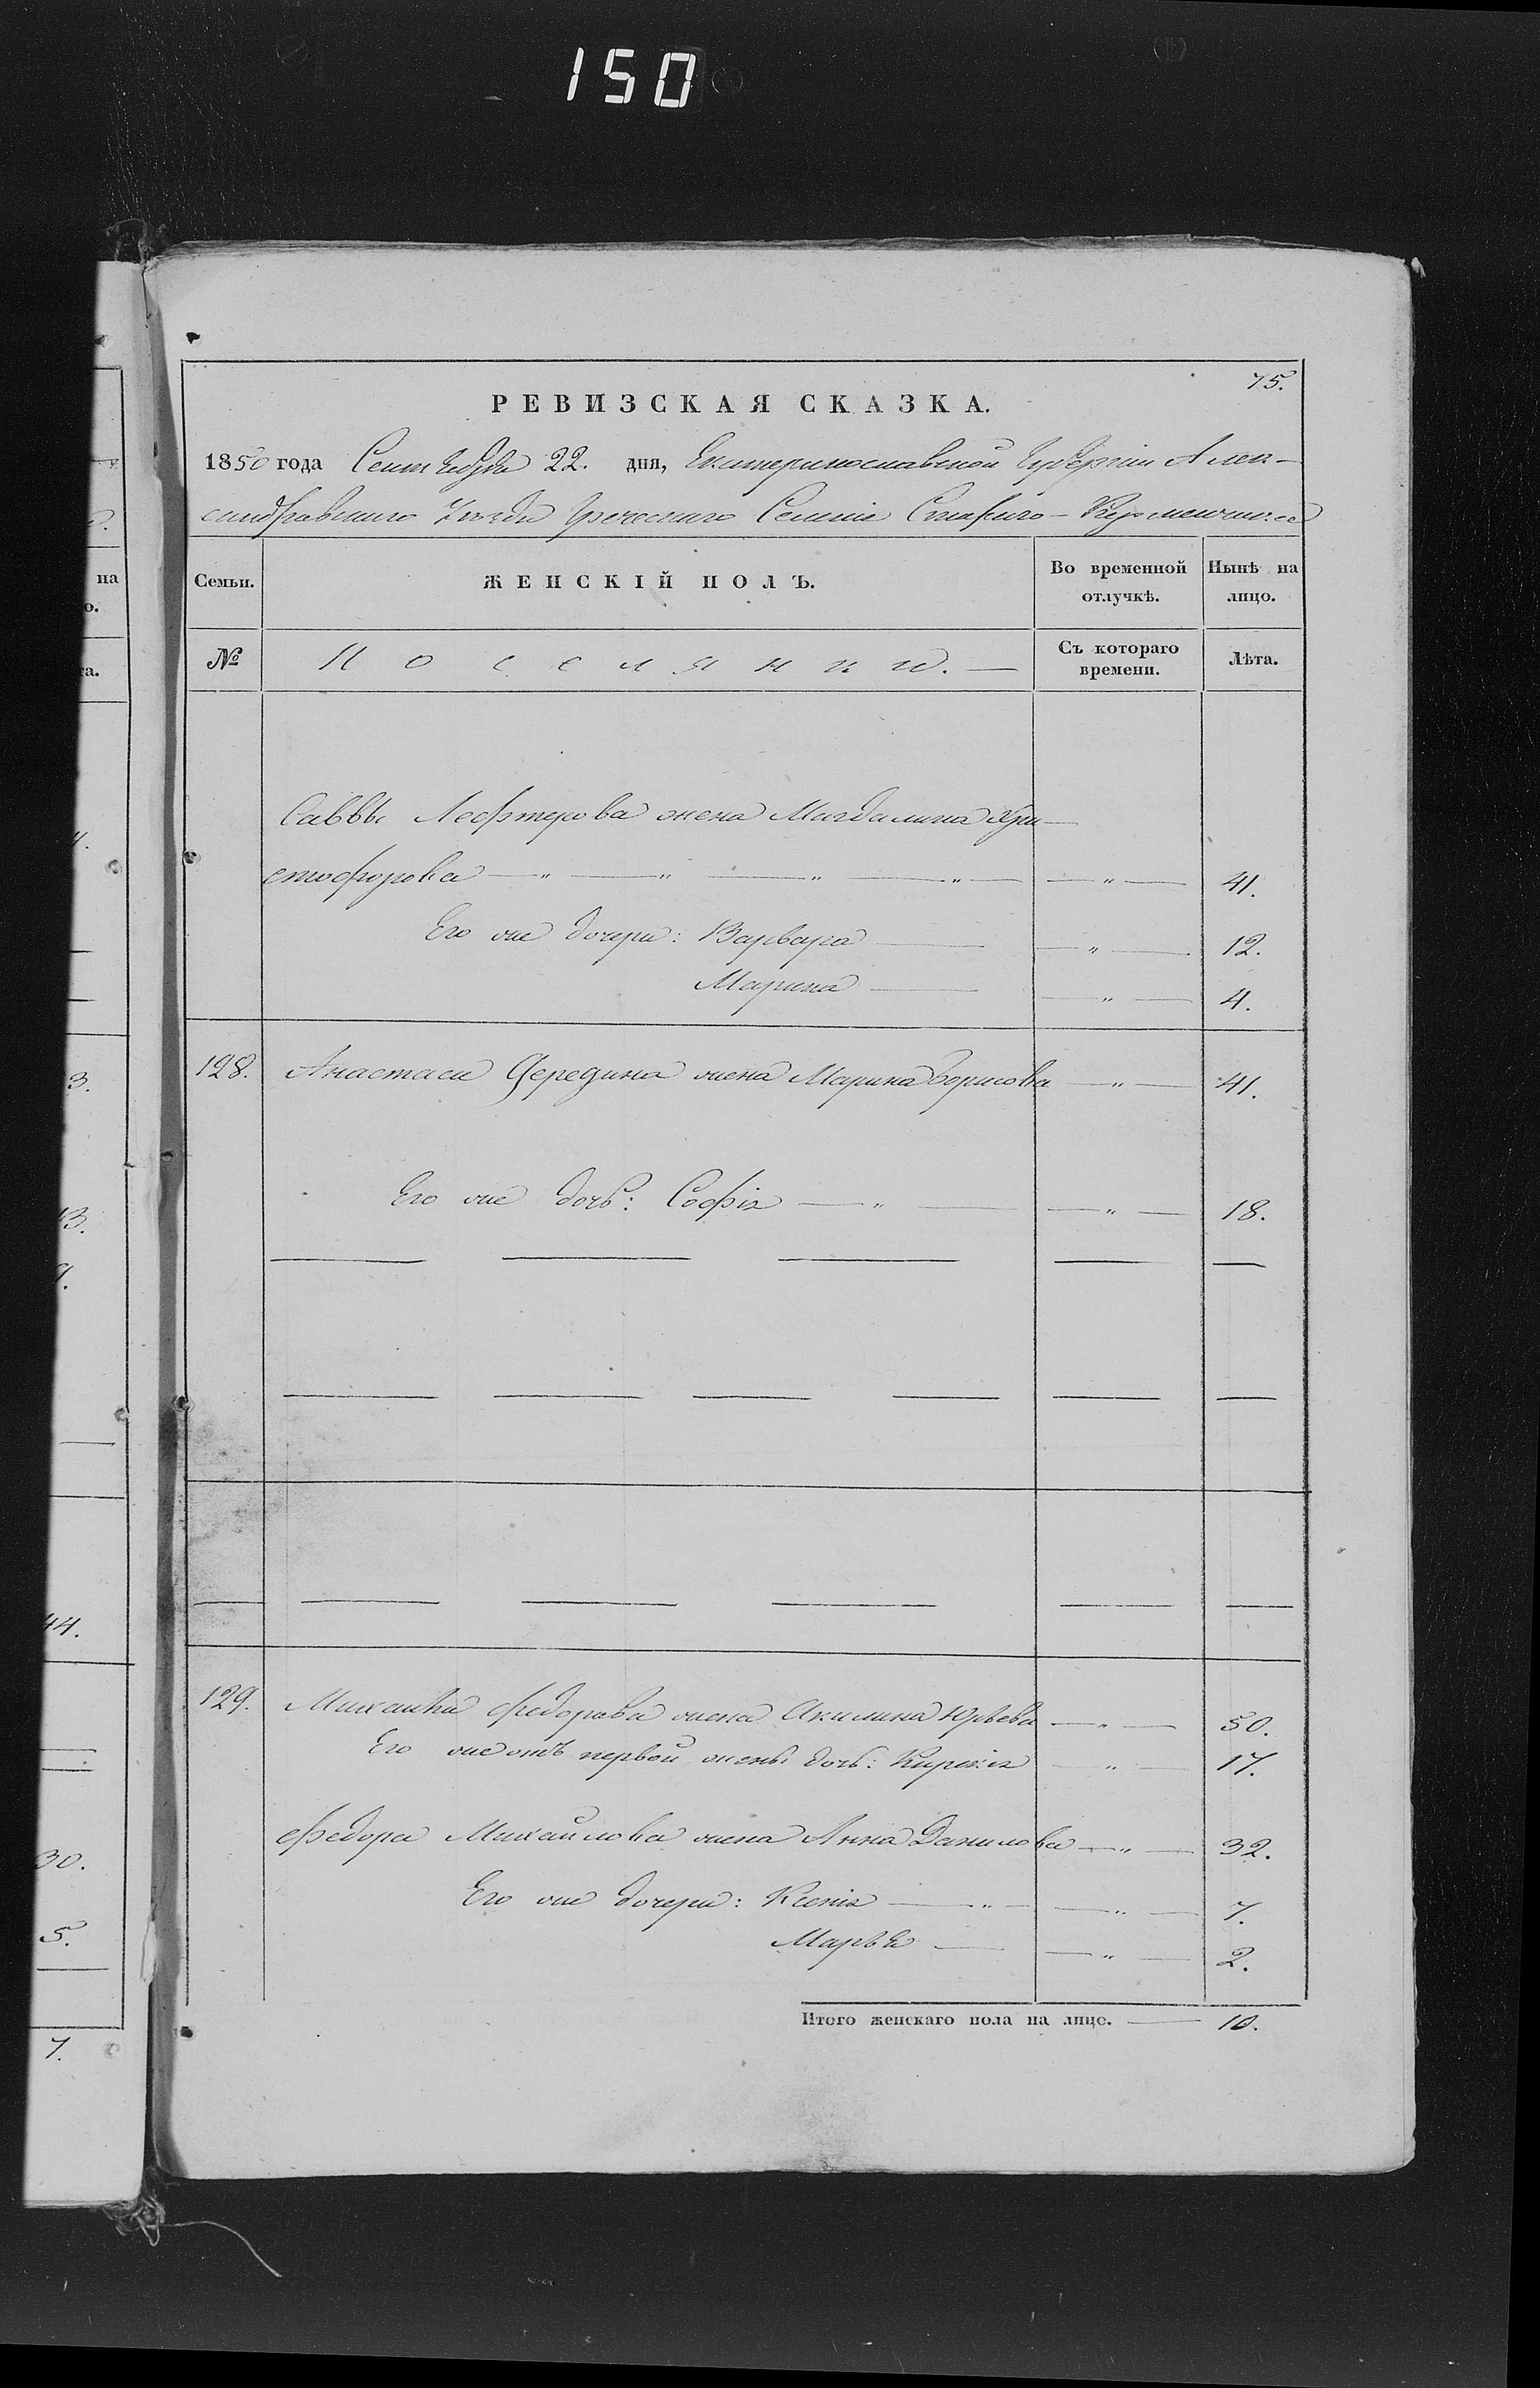 150
75.
РЕВИЗСКАЯ СКАЗКА.
1850 года Сентября 22. дня, Екатеринославской Губерніи Алек-
сандровскаго Уѣзда Греческаго Селенія Стараго-Керменчика
Семьи.
ЖЕНСКІЙ ПОЛЪ.
Во временной отлучкѣ.
Нынѣ на лицо.
№
Поселянки.
Съ котораго времени.
Лѣта.
Саввы Лефтерова жена Магдалина Хри-
стофорова — " — " — " — " — — " — 41.
Его же дочери: Варвара — — " — 12.
Марина — — " — 4.
128. Анастаса Середина жена Марина Борисова — " — 41.
Его же дочь: Софія — " — — " — 18.
129. Михаила Федорова жена Акилина Юрьева — " — 50.
Его же отъ первой жены дочь: Кирекія — " — 17.
Федора Михайлова жена Анна Данилова — " — 32.
Его же дочери: Ксенія — " — — " — 7.
Марья — — " — 2.
Итого женскаго пола на лицо. — 10.
на
о.
та.
3.
13.
44.
30.
5.
7.